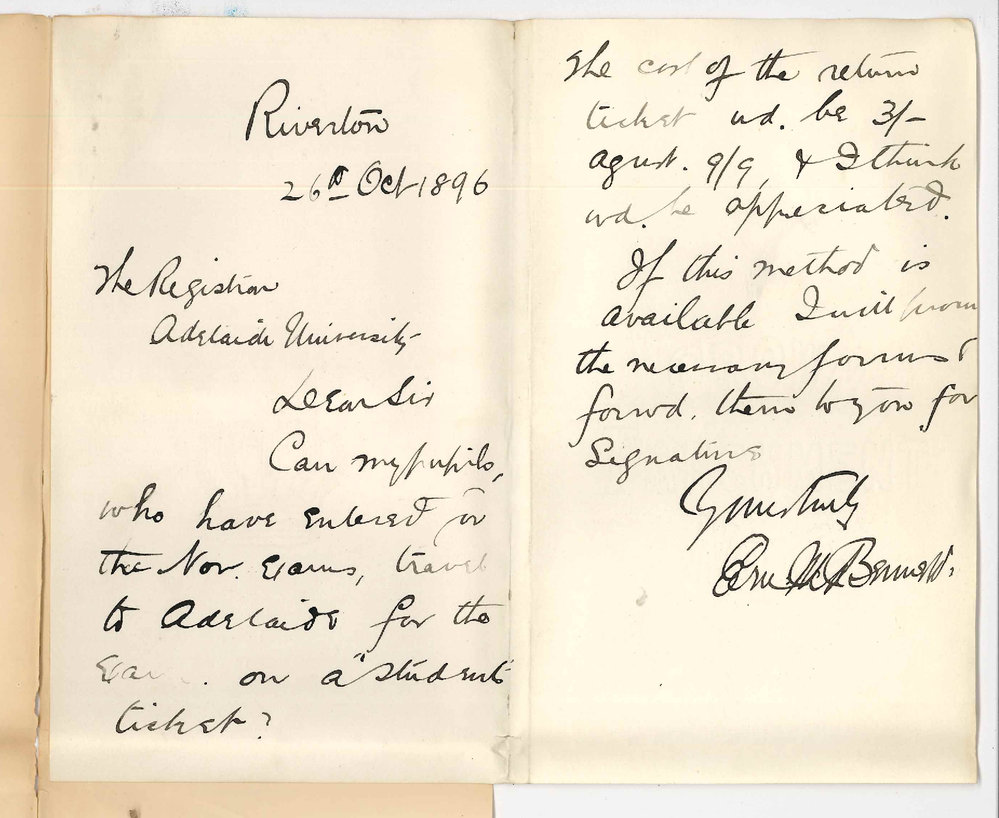 Riverton
26th Oct 1896
The Registrar
Adelaide University
Dear Sir
Can my pupils,
who have entered for
the Nov. Exams, travel
to Adelaide for the
Exam. on a "students
ticket?
The cost of the return
ticket wd. be 3/-
agnst. 9/9, & I think
wd. be appreciated.
If this method is
available I will
the necessary forms &
forwd. them to you for
Signature
Yours truly
Bennett.